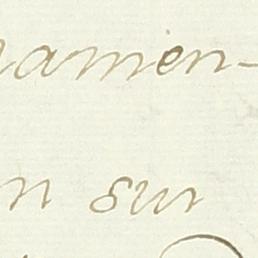 ramen-
n sur